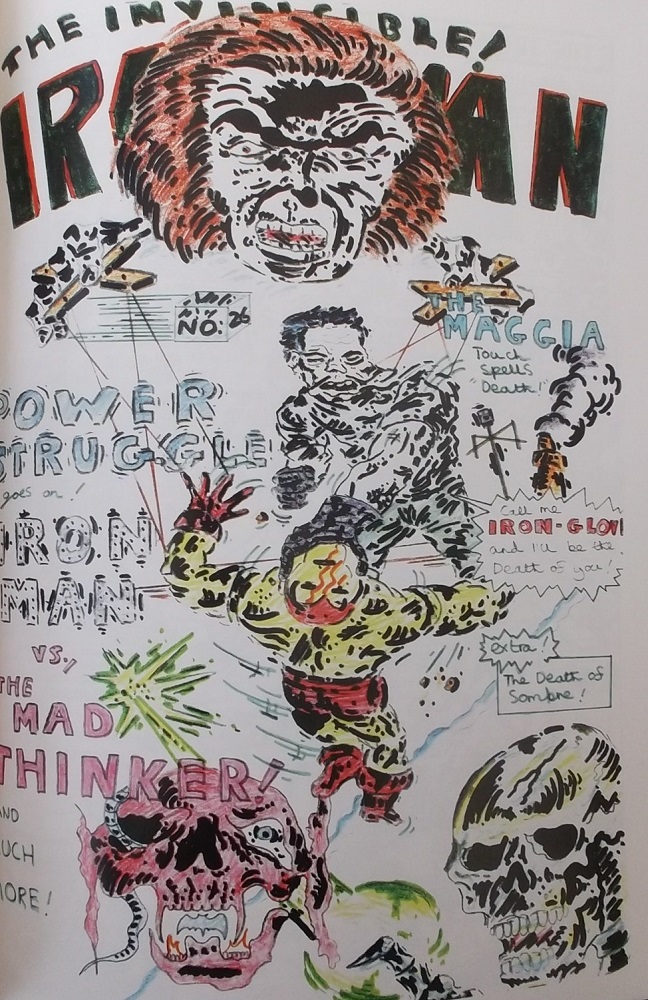 THE INVINCIBLE!
IRON MAN
NO: 26
THE
MAGGIA
Touch
Spells
"Death!"
POWER
STRUGGLE
goes on!
IRON
MAN
VS.,
THE
MAD
THINKER!
AND
MUCH
MORE!
Call me
IRON-GLOVE
and I'll be the
Death of you!
extra!
The Death of
Sombre!